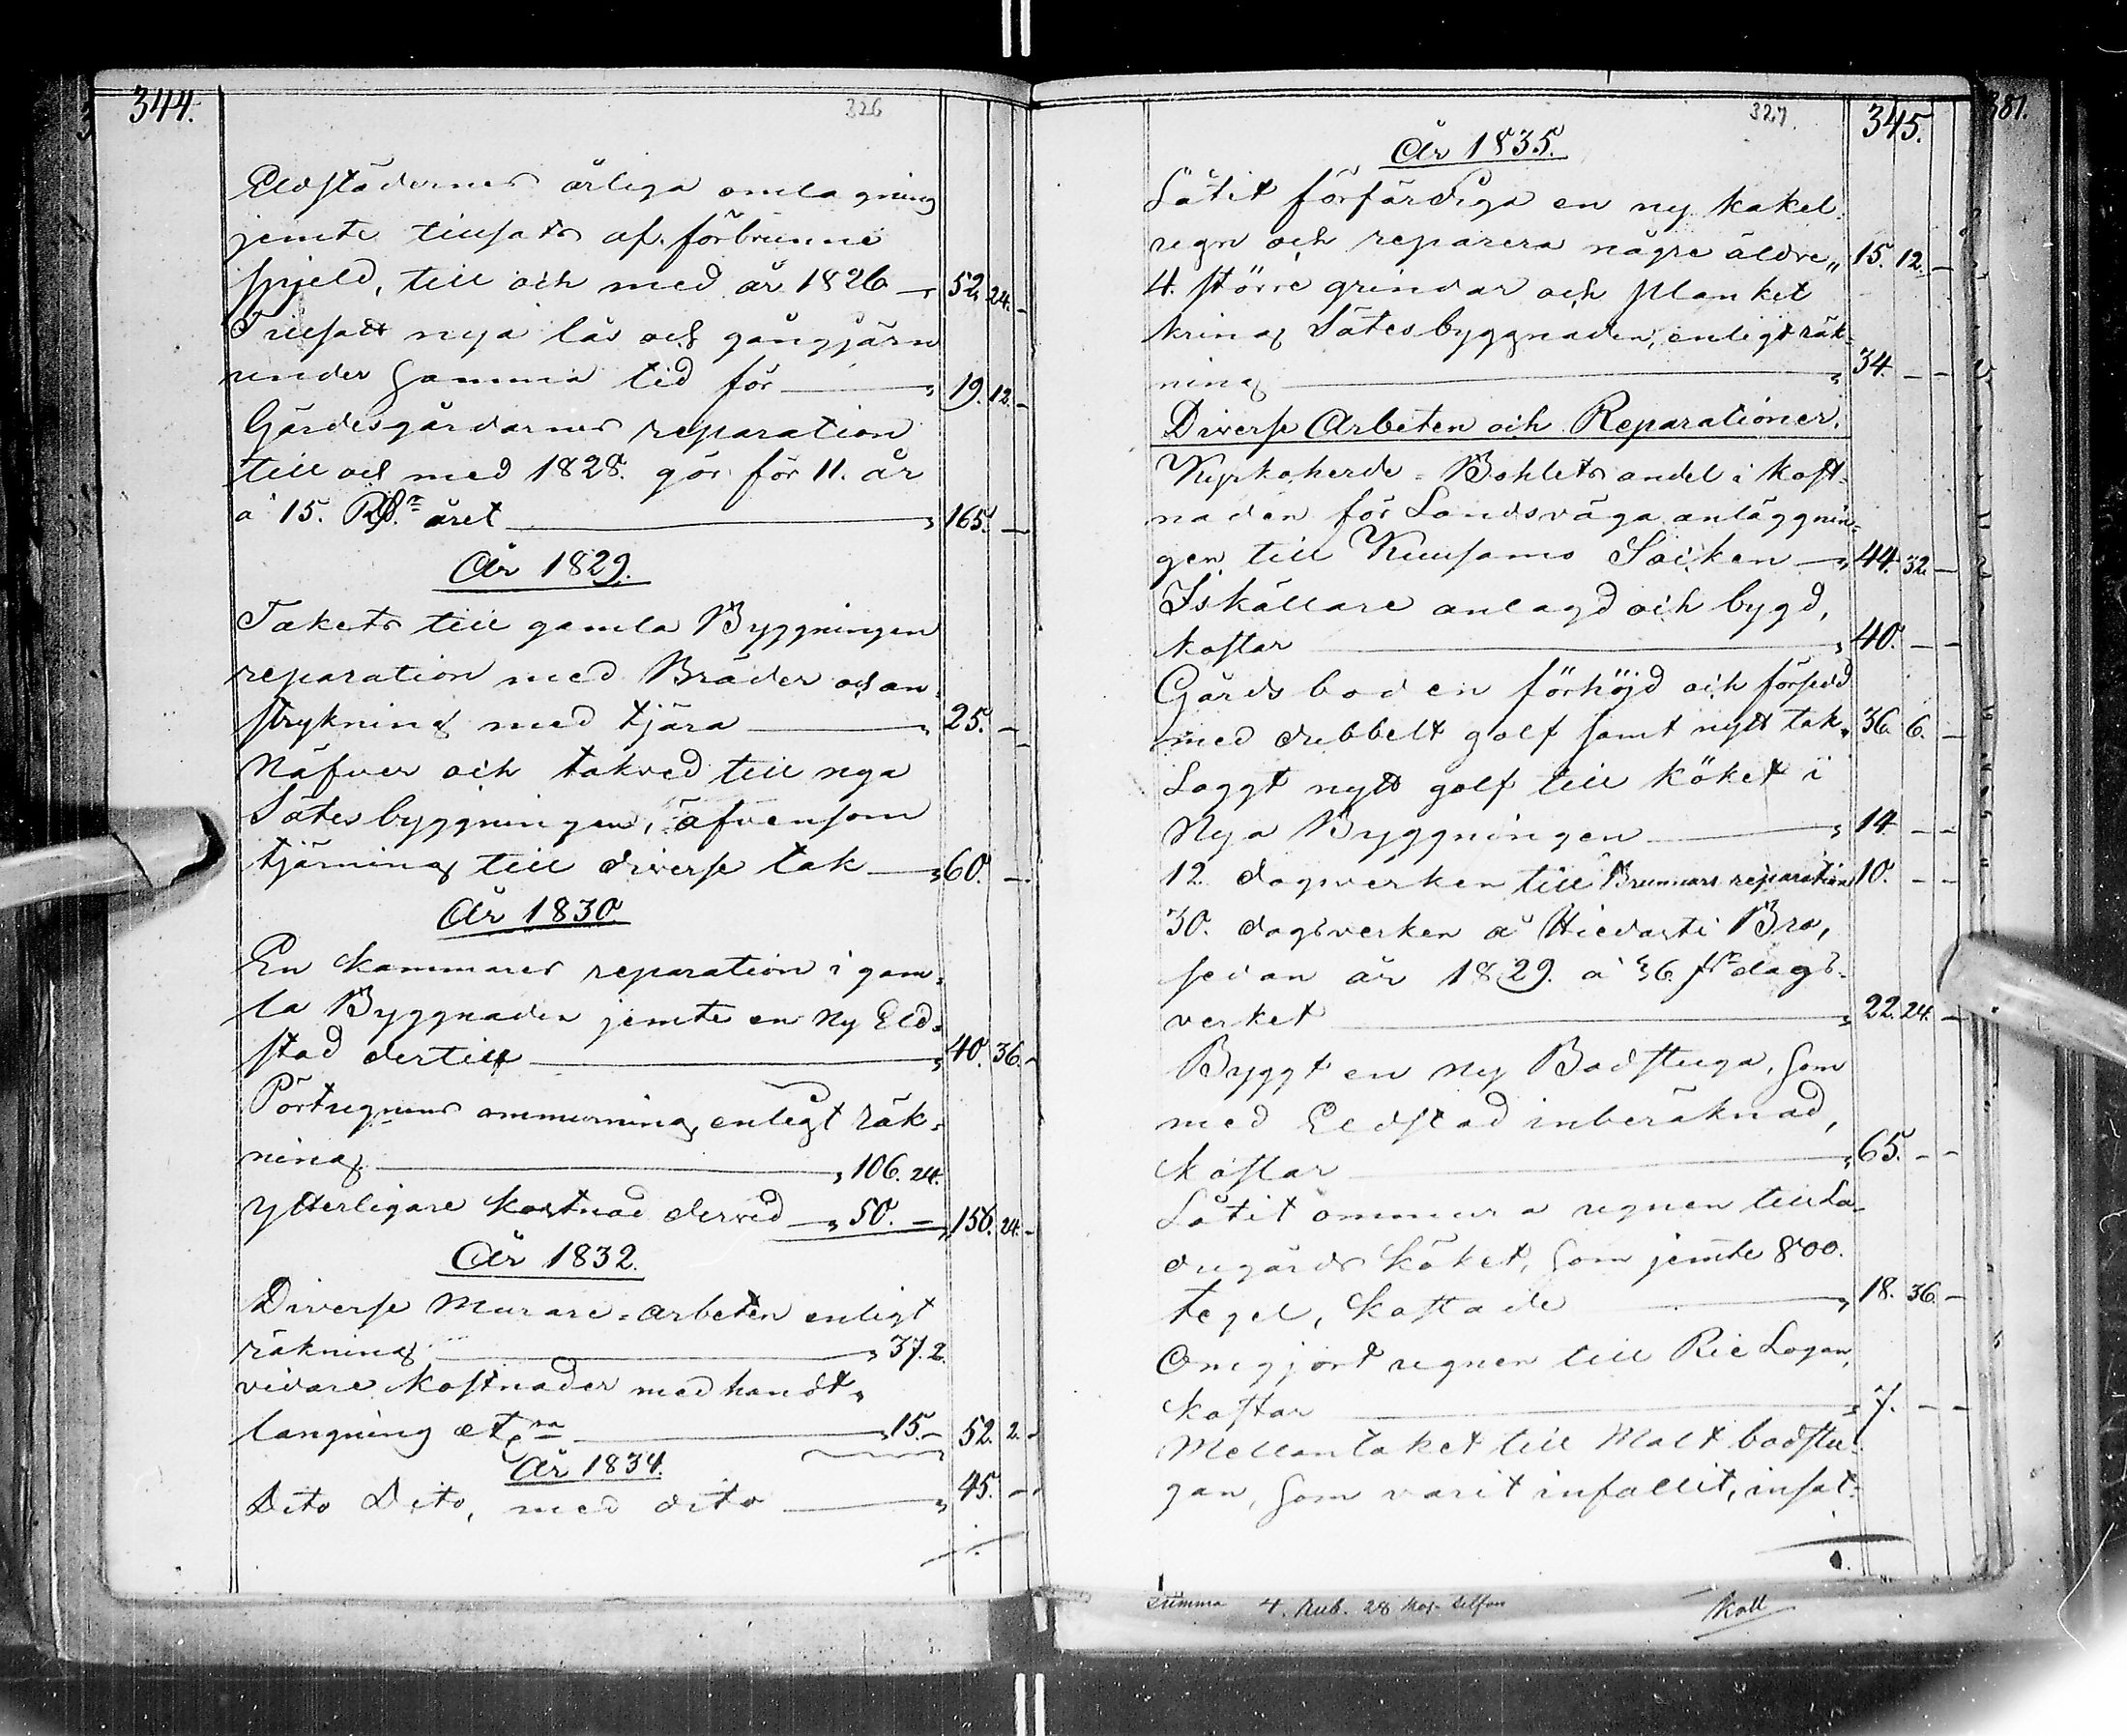 344.
326
Eldstädernes årliga omlagning
jemte tillsats af förbrunne
spjeld, till och med år 1826 — 52. 24. –
Tillsatt nya lås och gångjärn
under samma tid för — „ 19. 12. –
Gärdesgårdarnes reparation
till och med 1828. gör för 11. år
à 15. Rdr. året — „ 165. —
År 1829.
Takets till gamla Byggningen
reparation med Bräder och an-
strykning med tjära — „ 25. – –
Näfver och takved till nya
Sätesbyggningen, äfvensom
tjärning till diverse tak — „ 60. – –
År 1830.
En Kammares reparation i gam-
la Byggnaden jemte en ny Eld-
stad dertill — „ 40. 36. –
Pörtugnens ommurning, enligt räk-
ning — „ 106. 24.
Ytterligare kostnad dervid — „ 50. – „ 156. 24. –
År 1832.
Diverse Murare-arbeten enligt
räkning — „ 37. 2.
vidare kostnader med handt-
langning etc:ra — „ 15. – 52. 2. –
År 1834.
Dito Dito, med dito — „ 45. – –
345.
381.
327.
År 1835.
Låtit förfärdiga en ny kakel-
ugn och reparera några äldre „ 15. 12. –
4. större grindar och planket
kring Sätesbyggnaden, enligt räk-
ning — „ 34. – –
Diverse Arbeten och Reparationer.
Kyrkoherde-Bohlets andel i kost-
naden för Landsväga anläggnin-
gen till Kuusamo Socken — „ 44. 32. –
Iskällare anlagd och bygd,
kostar — „ 40. – –
Gårdsboden förhöjd och försedd
med dubbelt golf samt nytt tak „ 36. 6. –
Laggt nytt golf till köket i
Nya Byggningen — „ 14 – –
12. dagsverken till Brunnars reparation 10. – –
30. dagsverken å Hiedasti Bro,
sedan år 1829. à 36 sk. dags-
verket — „ 22. 24. –
Byggt en ny Badstuga, som
med Eldstad inberäknad,
kostar — „ 65. – –
Låtit ommura ugnen till La-
dugårds köket, som jemte 800.
tegel, kostade — „ 18. 36. –
Omgjort ugnen till Rie Logan,
kostar — „ 7. – –
Mellantaket till Malt badstu-
gan, som varit infallit, insat-
Summa 4. Rub. 28 kop. Silfver